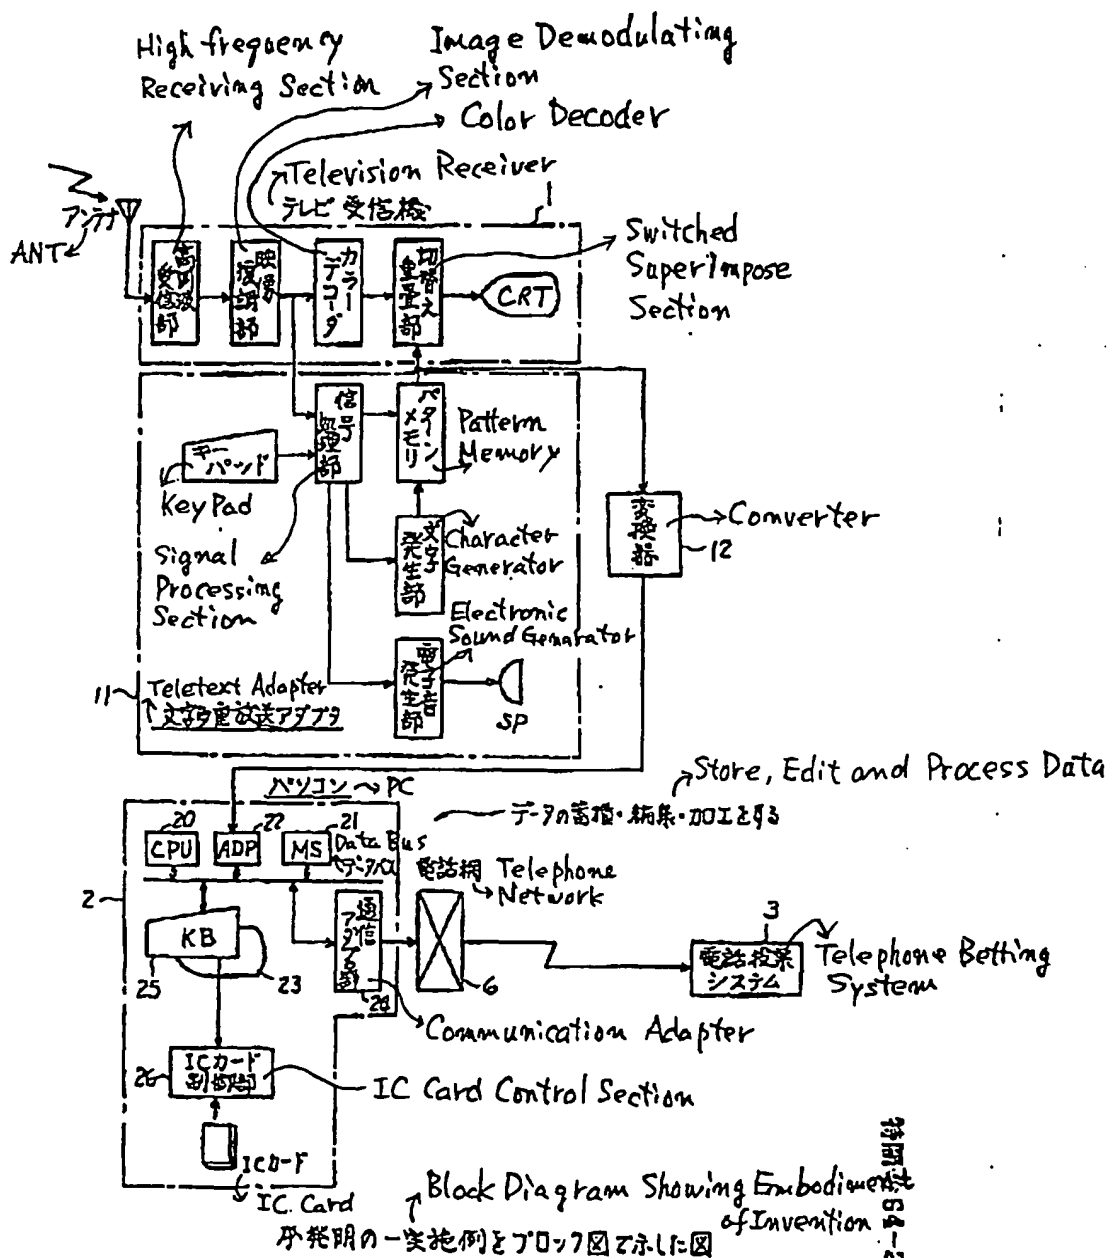 High frequency
Receiving Section
Image Demodulating
Section
Color Decoder
Television Receiver
テレビ受信機
1
Switched
Superimpose
Section
アンテナ
ANT
高周波
受信部
映像
復調部
カラー
デコーダ
切替え
重畳部
CRT
信号
処理部
パターン
メモリ
Pattern
Memory
キー
パッド
KeyPad
Signal
Processing
Section
文字
発生部
Character
Generator
変換部
Converter
12
Electronic
Sound Genarator
電子音
発生部
SP
11
Teletext Adapter
文字多重放送アダプタ
パソコン → PC
Store, Edit and Process Data
データの蓄積・編集・加工をする
20
22
21
CPU
ADP
MS
Data Bus
データバス
電話網
Telephone
Network
2
KB
25
23
通信
アダプタ部
24
6
3
電話投票
システム
Telephone Betting
System
Communication Adapter
26
ICカード
制御部
IC Card Control Section
ICカード
IC. Card
Block Diagram Showing Embodiment
of Invention
本発明の一実施例をブロック図で示した図
特開昭64-